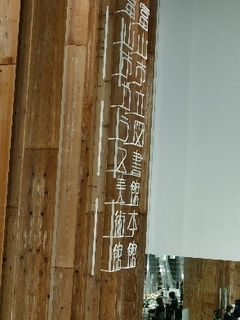 富山市立図書館本館
富山市ガラス美術館